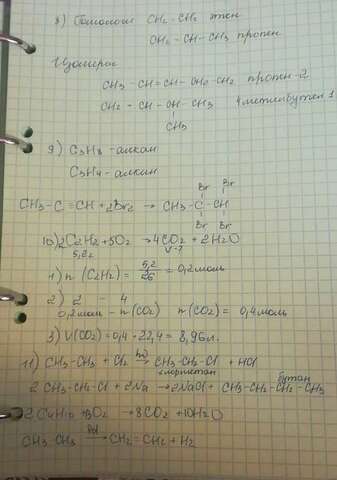 8) Гомологи CH2 - CH2 этен
CH2 - CH - CH3 пропен
Изомеры
CH3 - CH = CH - CH2 - CH2 -2
CH2 - CH - CH - CH3 метилбутен 1
CH3
9) C3H8 - алкан
C3H4 - алкин
Br Br
CH3-C ≡ CH + 2Br2 → CH3-C - CH
Br Br
10) 2C2H2 + 5O2 → 4CO2 + 2H2O
5,2г V-?
1) n (C2H2) = 5,2/26 = 0,2 моль
2) 2 - 4
0,2 моль - n (CO2) n (CO2) = 0,4 моль
3) V(CO2) = 0,4 · 22,4 = 8,96 л.
11) CH3-CH3 + Cl2 hν→ CH3-CH2-Cl + HCl
хлорэтан бутан
2 CH3-CH2-Cl + 2Na → 2NaCl + CH3-CH2-CH2-CH3
2 C4H10 + 13O2 → 8CO2 + 10H2O
CH3 CH3 → CH2 = CH2 + H2